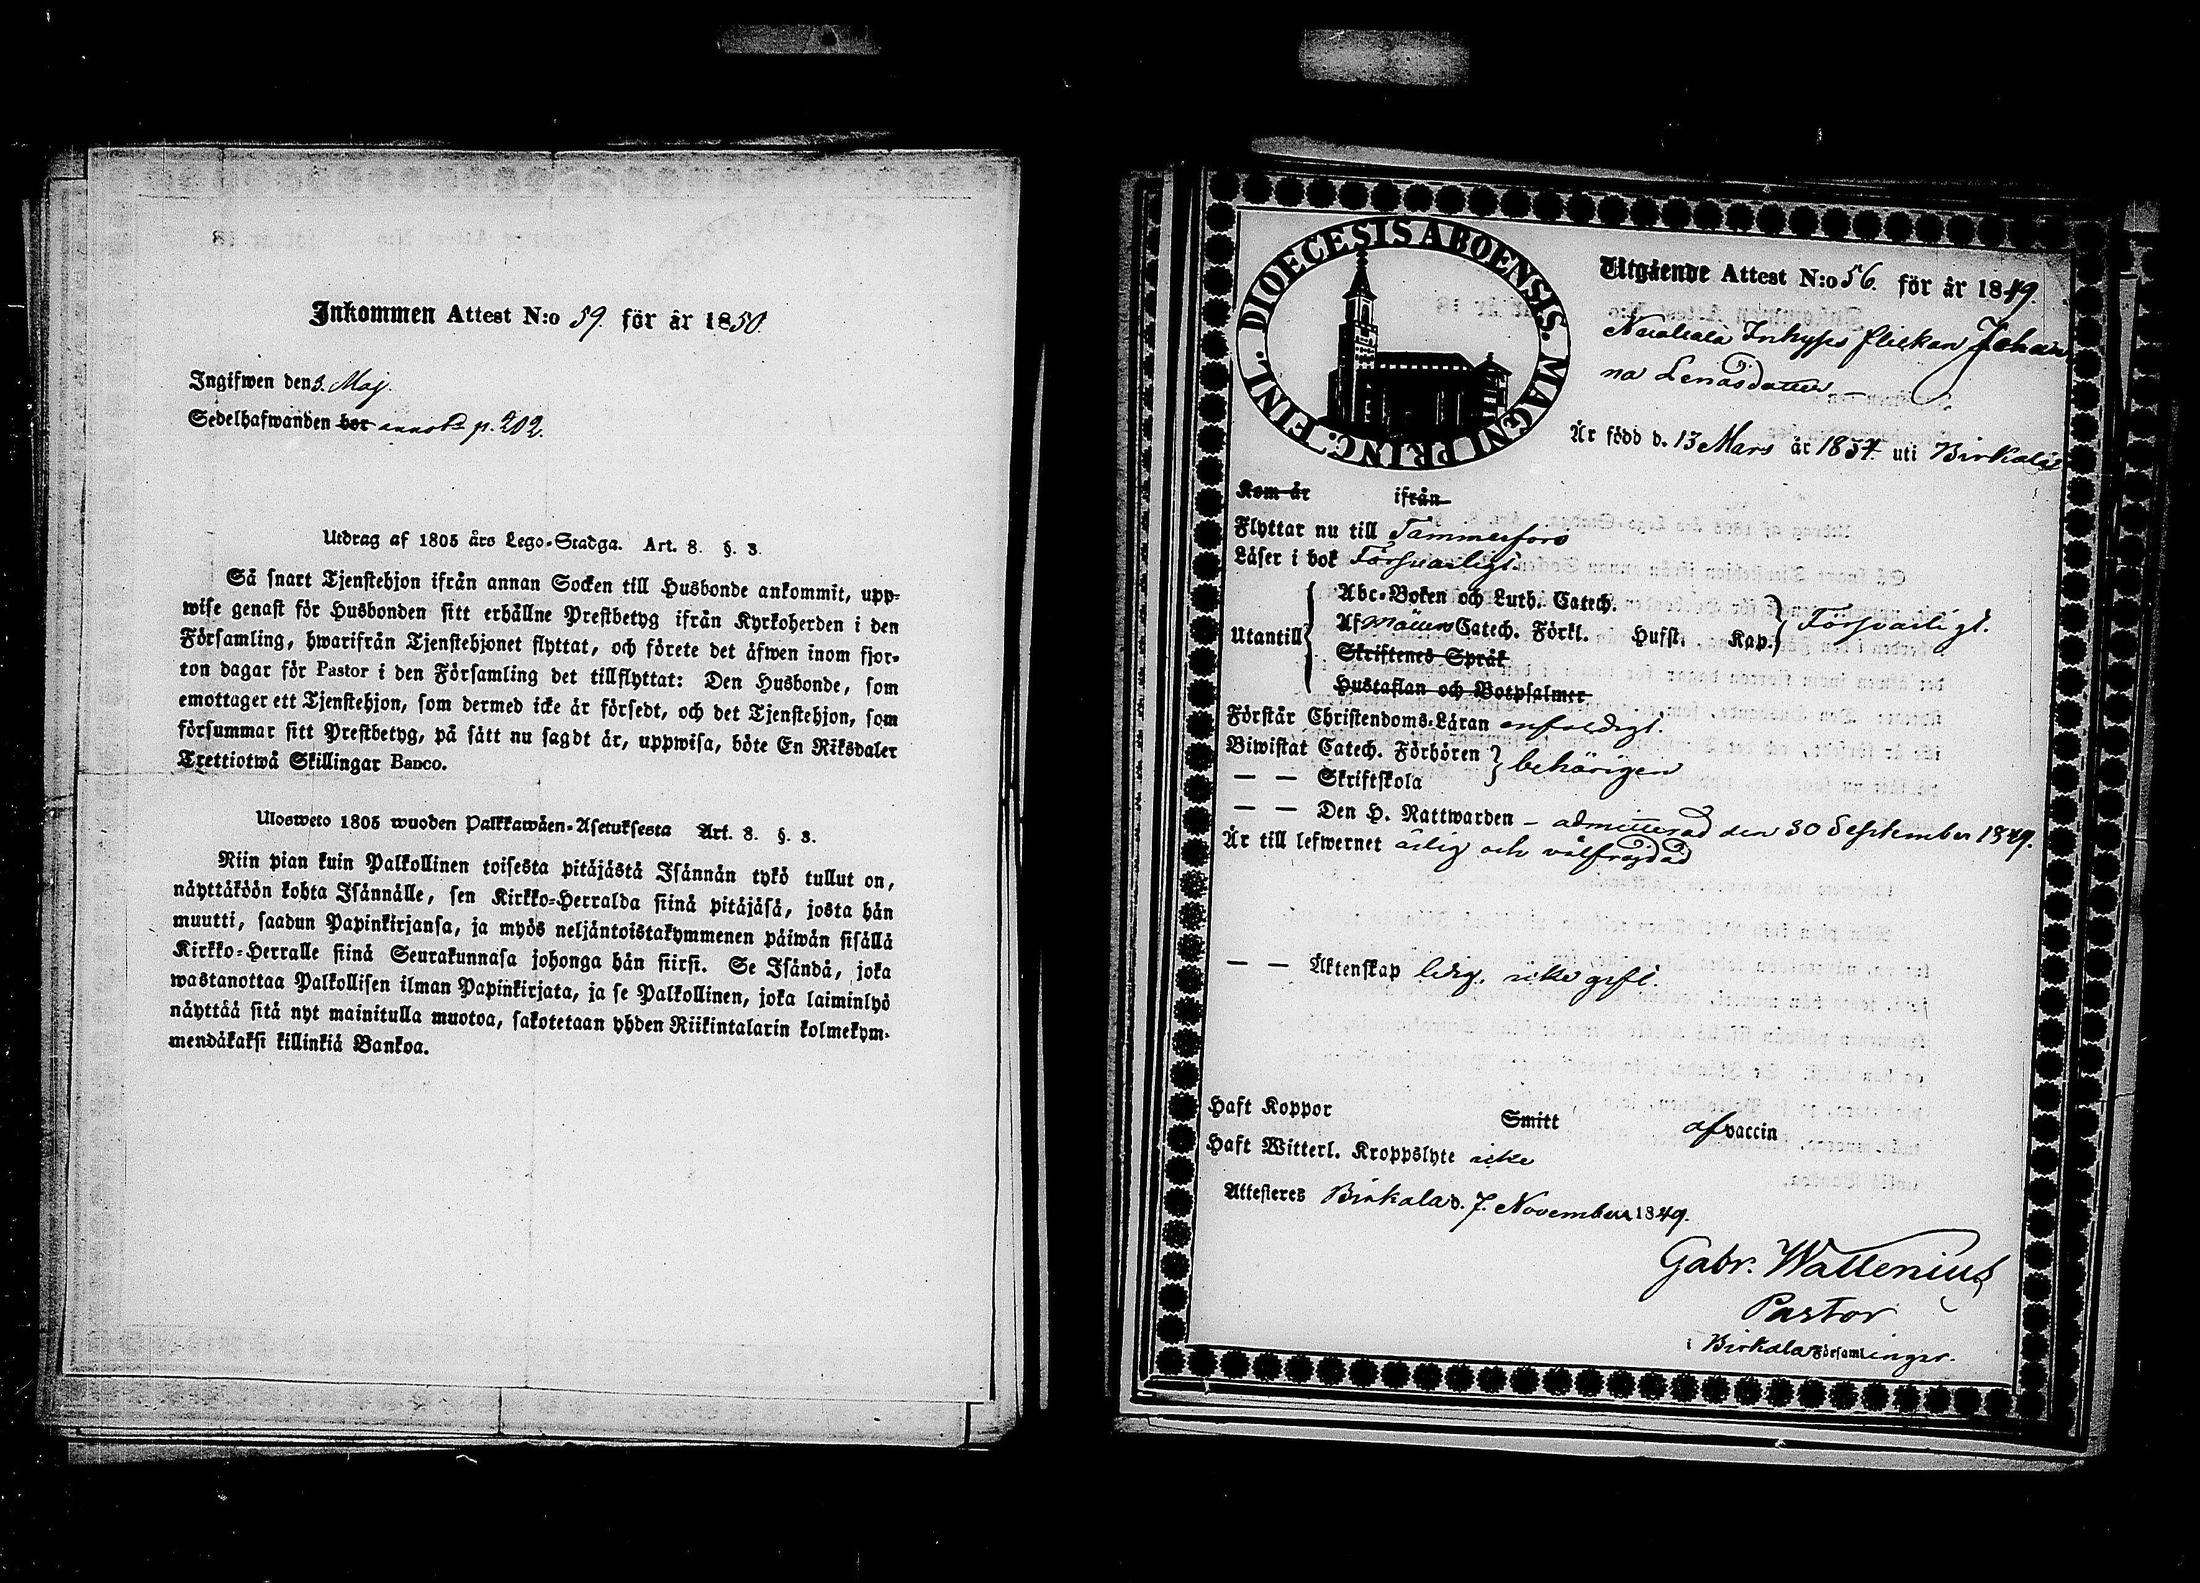 Inkommen Attest N:o 59. för år 1850.
Ingifwen den 3. Maj.
Sedelhafwanden bor annot. p. 202.
Utdrag af 1805 års Lego-Stadga. Art. 8. §. 3.
Så snart Tjenstehjon ifrån annan Socken till Husbonde ankommit, upp-
wise genast för Husbonden sitt erhållne Prestbetyg ifrån Kyrkoherden i den
Församling, hwarifrån Tjenstehjonet flyttat, och förete det äfwen inom fjor-
ton dagar för Pastor i den Församling det tillflyttat: Den Husbonde, som
emottager ett Tjenstehjon, som dermed icke är försedt, och det Tjenstehjon, som
försummar sitt Prestbetyg, på sätt nu sagdt är, uppwisa, böte En Riksdaler
Trettiotwå Skillingar Banco.
Ulosweto 1805 wuoden Palkkawäen-Asetuksesta Art. 8. §. 3.
Niin pian kuin Palkollinen toisesta pitäjästä Isännän tykö tullut on,
näyttäköön kohta Isännälle, sen Kirkko-Herralda siinä pitäjäsä, josta hän
muutti, saadun Papinkirjansa, ja myös neljäntoistakymmenen päiwän sisällä
Kirkko-Herralle siinä Seurakunnasa johonga hän siirsi. Se Isändä, joka
wastanottaa Palkollisen ilman Papinkirjata, ja se Palkollinen, joka laiminlyö
näyttää sitä nyt mainitulla muotoa, sakotetaan yhden Riikintalarin kolmekym-
mendäkaksi killinkiä Bankoa.
DIOECESIS ABOENSIS. MAGNI PRINC. FINL.
Utgående Attest N:o 56. för år 1849.
Inhyses flickan Johan
na Lenasdotter
Är född d. 13 Mars år 1834. uti Birkala
Kom år ifrån
Flyttar nu till Tammerfors
Läser i bok Försvarligt.
Utantill
Abc-Boken och Luth. Catech.
Af Möllers Catech. Förkl. Hufst. Kap. Försvarligt.
Skriftenes Språk
Hustaflan och Botpsalmer
Förstår Christendoms-Läran enfaldigt.
Biwistat Catech. Förhören
— — Skriftskola behörigen
— — Den H. Nattwarden - admitterad den 30 September 1849.
Är till lefwernet ärlig och välfrejdad
— — Äktenskap ledig, icke gift.
Haft Koppor Smitt af vaccin
Haft Witterl. Kroppslyte icke
Attesteres Birkala d. 7. November 1849.
Gabr. Wallenius
Pastor
i Birkala Församlingar.